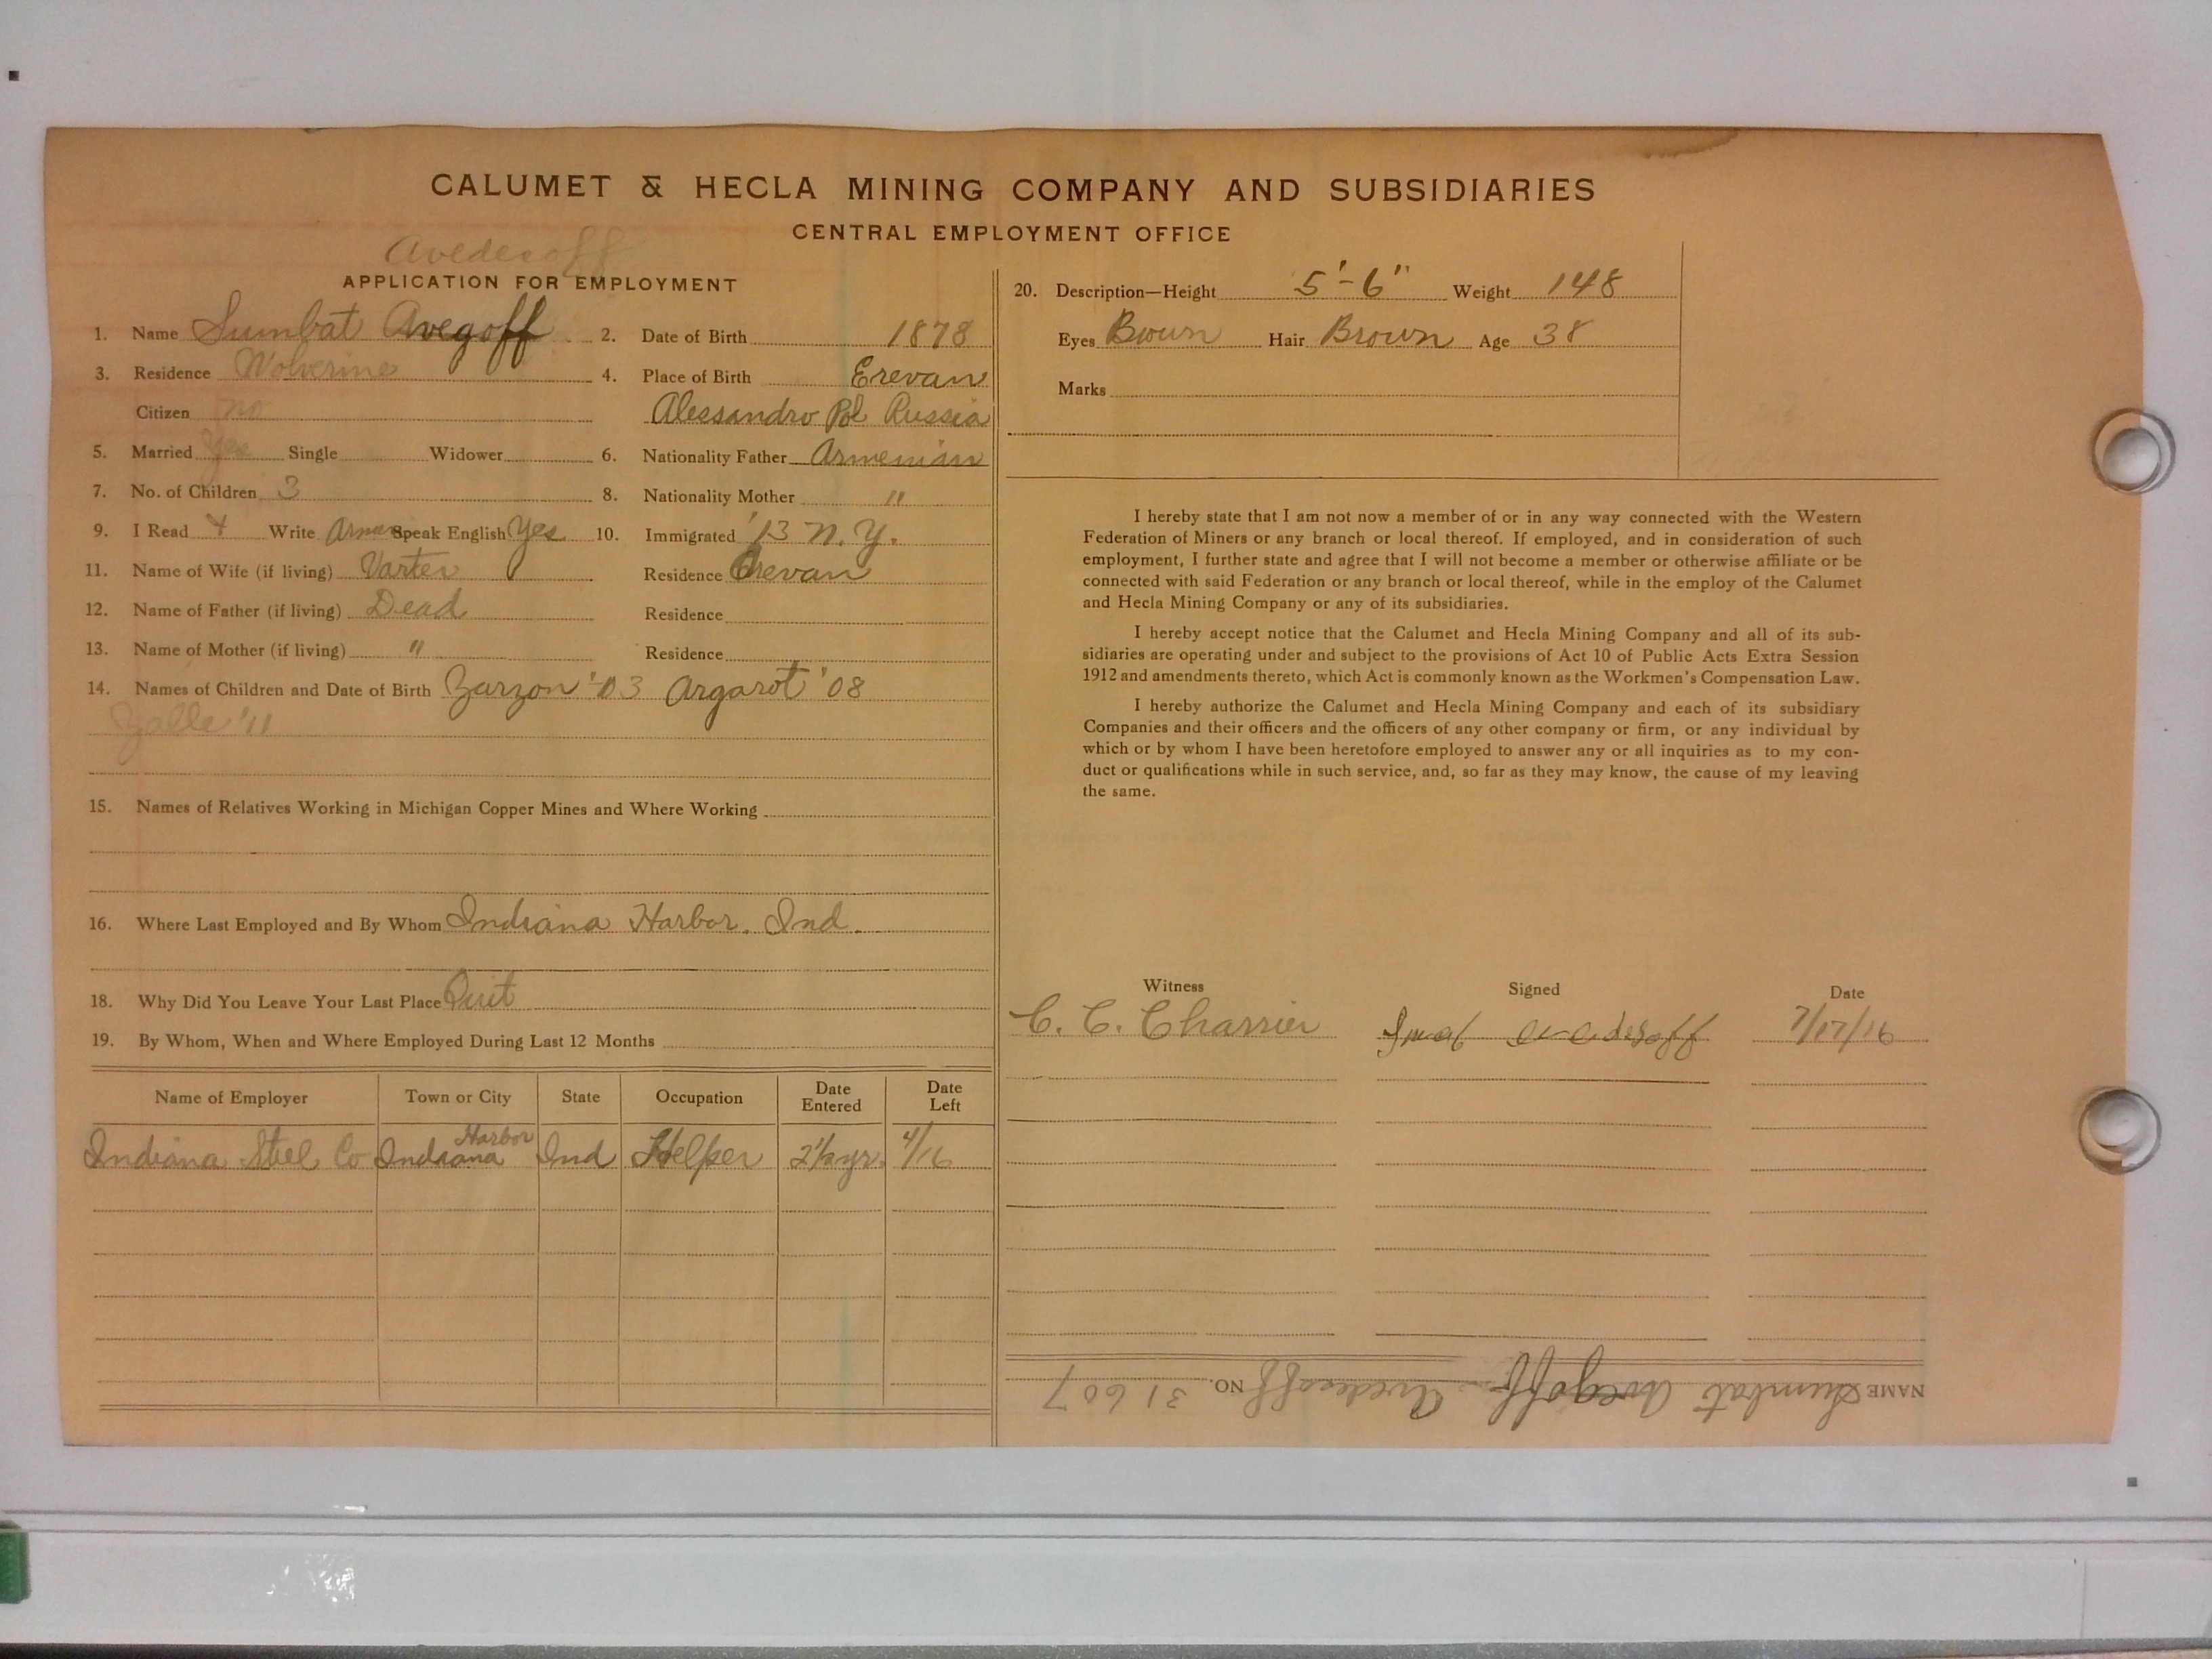 CALUMET & HECLA MINING COMPANY AND SUBSIDIARIES
CENTRAL EMPLOYMENT OFFICE
Avedesoff
APPLICATION FOR EMPLOYMENT
1. Name Sumbat Avegoff 2. Date of Birth 1878
3. Residence Wolverine 4. Place of Birth Erevan
Citizen no Alessandro Pol Russia
5. Married Yes Single Widower 6. Nationality Father Armenian
7. No. of Children 3 8. Nationality Mother "
9. I Read + Write Armen Speak English Yes 10. Immigrated '13 N.Y.
11. Name of Wife (if living) Varter Residence Erevan
12. Name of Father (if living) Dead Residence
13. Name of Mother (if living) " Residence
14. Names of Children and Date of Birth Zarzon '03 Argarot '08
Zalle '11
15. Names of Relatives Working in Michigan Copper Mines and Where Working
16. Where Last Employed and By Whom Indiana Harbor. Ind.
18. Why Did You Leave Your Last Place Quit
19. By Whom, When and Where Employed During Last 12 Months
Name of Employer Town or City State Occupation Date Entered Date Left
Indiana Steel Co Indiana Harbor Ind Helper 2½ yr. 4/16
20. Description—Height 5'-6" Weight 148
Eyes Brown Hair Brown Age 38
Marks
I hereby state that I am not now a member of or in any way connected with the Western
Federation of Miners or any branch or local thereof. If employed, and in consideration of such
employment, I further state and agree that I will not become a member or otherwise affiliate or be
connected with said Federation or any branch or local thereof, while in the employ of the Calumet
and Hecla Mining Company or any of its subsidiaries.
I hereby accept notice that the Calumet and Hecla Mining Company and all of its sub-
sidiaries are operating under and subject to the provisions of Act 10 of Public Acts Extra Session
1912 and amendments thereto, which Act is commonly known as the Workmen's Compensation Law.
I hereby authorize the Calumet and Hecla Mining Company and each of its subsidiary
Companies and their officers and the officers of any other company or firm, or any individual by
which or by whom I have been heretofore employed to answer any or all inquiries as to my con-
duct or qualifications while in such service, and, so far as they may know, the cause of my leaving
the same.
Witness Signed Date
C. C. Charrier 7/17/16
NAME Sumbat Avegoff Avedesoff NO. 31607